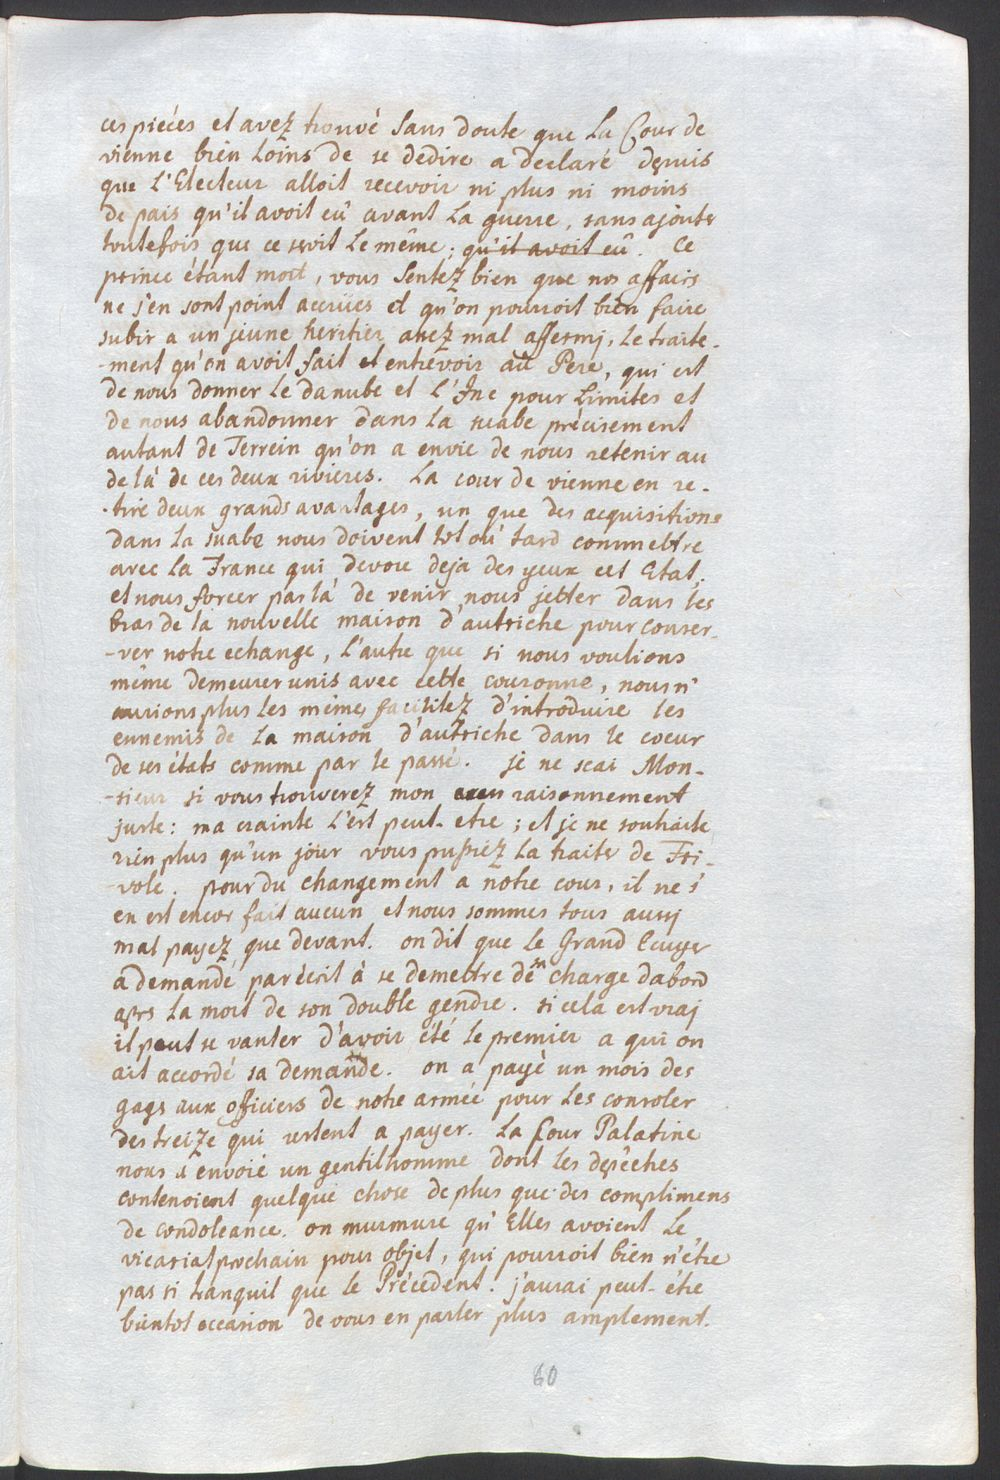 ces pieces et avez trouvé sans doute que La Cour de
vienne bien Loins de se dedire a declaré depuis
que L'Electeur alloit recevoir ni plus ni moins
de pais qu'il avoit eû avant La guerre, sans ajouter
toutefois que ce seroit Le même; qu'il avoit eû. Ce
prince étant mort, vous sentez bien que nos affairs
ne s'en sont point accrües et qu'on pourroit bien faire
subir a un jeune heritier assez mal affermj, Le traite-
-ment qu'on avoit fait et entrevoir au Pere, qui est
de nous donner Le danube et L'Jne pour Limites et
de nous abandonner dans La suabe précisement
autant de Terrein qu'on a envie de nous retenir au
de là de ces deux rivieres. La cour de vienne en re-
-tire deux grands avantages, un que des acquisitions
dans La suabe nous doivent tot où tard commettre
avec La France qui devore deja des yeux cet Etat.
et nous forcer par là de venir nous jetter dans les
bras de la nouvelle maison d'autriche pour conser-
-ver notre echange, L'autre que si nous voulions
même demeurer unis avec cette couronne, nous n'
aurions plus Les mémes facilitez d'introduire les
ennemis de La maison d'autriche dans le coeur
de ses états comme par le passé. je ne scai Mon-
-sieur si vous trouverez mon raisonnement
juste: ma crainte L'est peut-etre; et je ne souhaite
rien plus qu'un jour vous pussiez La traiter de Fri-
-vole. pour du changement a notre cour, il ne s'
en est encor fait aucun et nous sommes tous aussj
mal payez que devant. on dit que Le Grand Ecuyer
a demandé par écrit à se demettre de sa charge dabord
aprs La mort de son double gendre. si cela est vraj
il peut se vanter d'avoir été le premier a qui on
ait accordé sa demande. on a payé un mois des
gags aux officiers de notre armée pour Les consoler
des treize qui restent a payer. La Cour Palatine
nous a envoié un gentilhomme dont Les depêches
contenoient quelque chose de plus que des complimens
de condoleance. on murmure qu'Elles avoient Le
vicariat prochain pour objet, qui pourroit bien n'être
pas si tranquil que Le Précedent. j'aurai peut-étre
bientot occasion de vous en parler plus amplement.
60